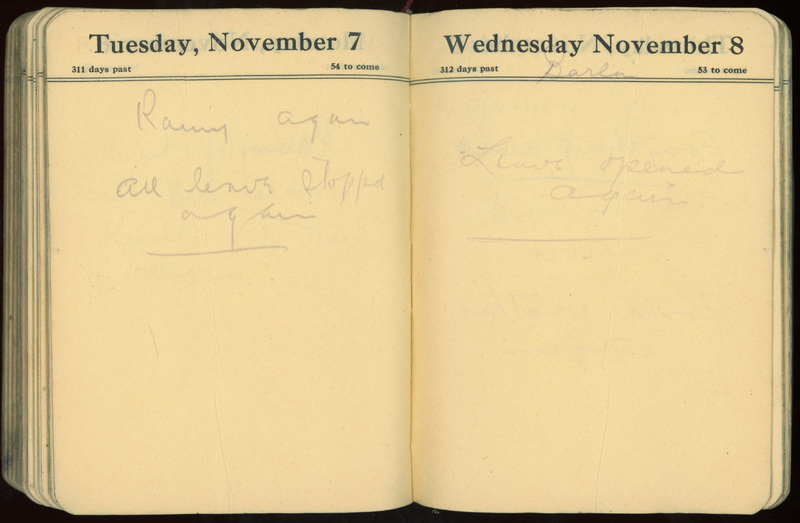 Tuesday, November 7
311 days past 54 to come
Rainy again
all leave stopped
again
Wednesday November 8
312 days past 53 to come
Leave opened
again